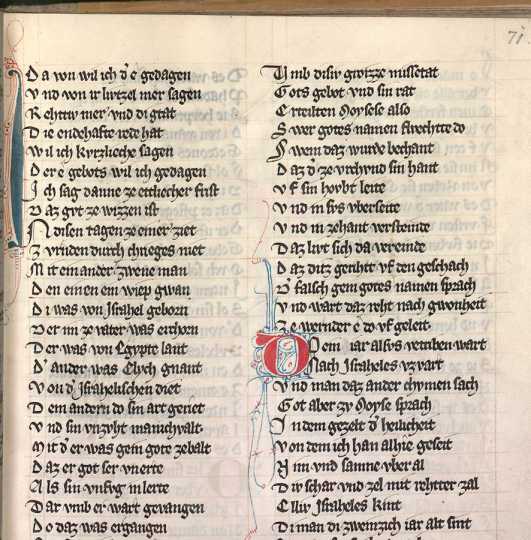 71
Da von wil ich d' e gedagen
Vnd von ir lvtzel mer sagen
Rehttv mer vnd di grat
Die endehafte rede hat
Wil ich kvrzliche sagen
Der e gebots wil ich gedagen
Ich sag danne ze etlicher frist
Daz gvt ze wizzen ist
In disen tagen ze einer ziet
Zvrnden dvrch chrieges niet
Mit einander zwene man
Den einen ein wiep gwan
Di was von Israhel geborn
Der im ze vater was erchorn
Der was von Egypte lant
D' ander was Elych gnant
Von d' Israhelischen diet
Dem andern do sin art geriet
Vnd sin vnzvht manichvalt
Mit d' er was gein gote zebalt
Daz er got ser vnerte
Als sin vnfvg in lerte
Dar vmb er wart gevangen
Do daz was ergangen
Vmb disiv grozze missetat
Gots gebot vnd sin rat
Erteilten Moysese also
Swer gotes namen flvechtte do
Swem daz wurde bechant
Daz d' ze vrchvnd sin hant
Vf sin hovbt leite
Vnd in fvr vberseite
Vnd in zehant versteinde
Daz livt sich da vereinde
Daz ditz geriht vf den geschach
D' falsch gein gotes namen sprach
Vnd wart daz reht nach gwonheit
Ze wernder e do vf geleit
Do ein iar alsvs vertriben wart
Nach Israheles vzvart
Vnd man daz ander chvmen sach
Got aber zv Moyse sprach
In dem gezelt d' heilicheit
Von dem ich han alhie geseit
Nim vnd samne vber al
Div schar vnd zel mit rehtter zal
Elliv Israheles kint
Di man di zweinzich iar alt sint